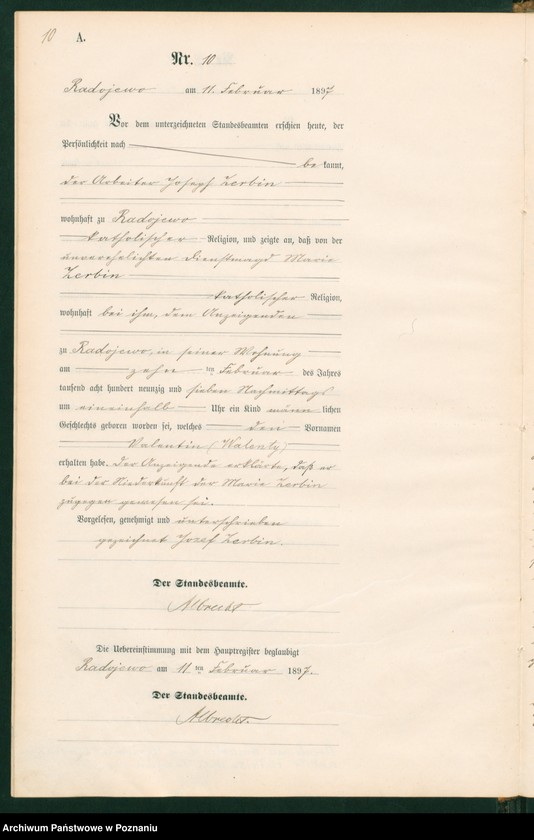 10 A.
Nr. 10
Radojewo am 11. Februar 1897
Vor dem unterzeichneten Standesbeamten erschien heute, der
Persönlichkeit nach
be kannt,
der Arbeiter Joseph Zerbin
wohnhaft zu Radojewo
katholischer Religion, und zeigte an, daß von der
unverehelichten Dienstmagd Marie
Zerbin
katholischer Religion,
wohnhaft bei ihm, dem Anzeigenden
zu Radojewo, in seiner Wohnung
am zehn ten Februar des Jahres
tausend acht hundert neunzig und sieben Nachmittags
um eineinhalb Uhr ein Kind männ lichen
Geschlechts geboren worden sei, welches den Vornamen
Valentin (Walenty)
erhalten habe. Der Anzeigende erklärte, daß er
bei der Niederkunft der Marie Zerbin
zugegen gewesen sei.
Vorgelesen, genehmigt und unterschrieben
gezeichnet Jozef Zerbin.
Der Standesbeamte.
Albrecht
Die Uebereinstimmung mit dem Hauptregister beglaubigt
Radojewo am 11 ten Februar 1897.
Der Standesbeamte.
Albrecht.
Archiwum Państwowe w Poznaniu